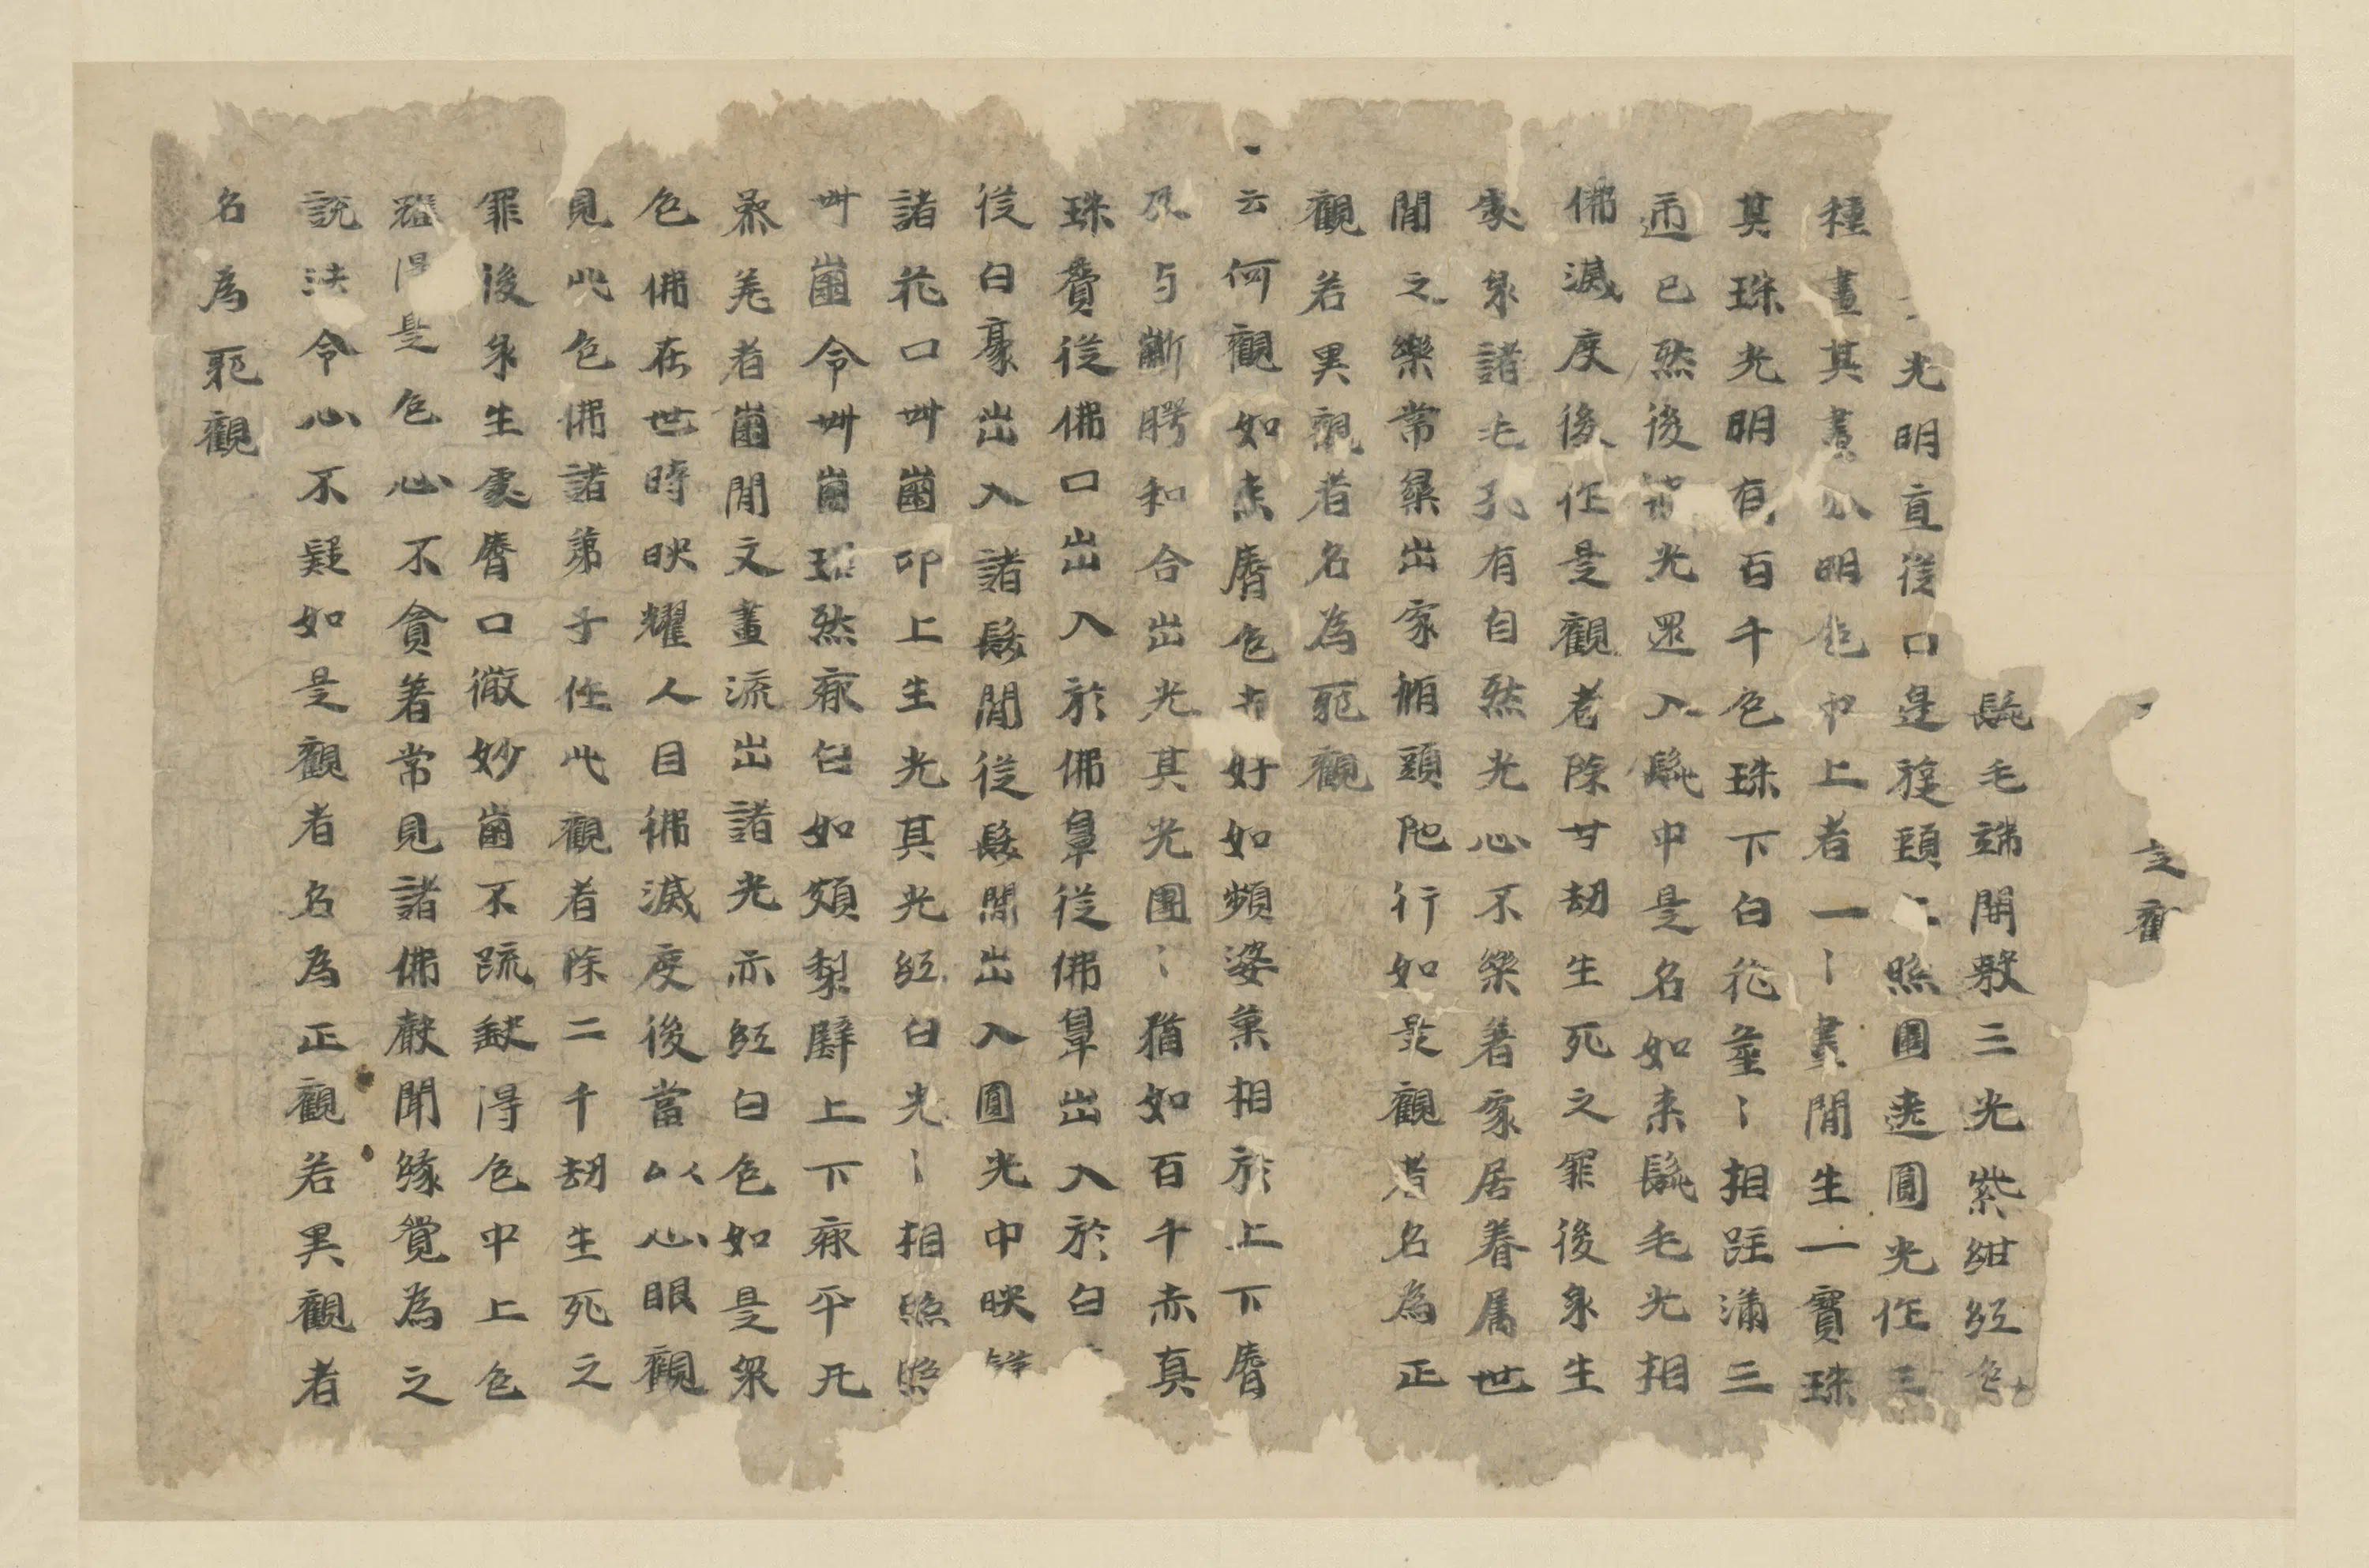 髭毛端開敷三光紫紺紅色
光明直從口邊旋頸上照圍遶圓光作三
種畫其畫分明色中上者一〻畫間生一寶珠
其珠光明有百千色珠下白花臺〻相跓滿三
迊已然後諸光還入髭中是名如来髭毛光相
佛滅度後作是觀者除廿劫生死之罪後身生
處身諸毛孔有自然光心不樂著家居眷属世
間之樂常樂出家脩頭陁行如是觀者名為正
觀若異觀者名為耶觀
云何觀如来脣色赤好如頻婆菓相於上下脣
及与齗腭和合出光其光團〻猶如百千赤真
珠貫從佛口出入於佛鼻從佛鼻出入於白
從白豪出入諸髮間從髮間出入圓光中映
諸花口卌齒印上生光其光紅白光〻相照照
卌齒令卌齒瑠然齊白如頗梨辟上下齊平凡
叅差者齒間文畫流出諸光亦紅白色如是衆
色佛在世時映耀人目佛滅度後當以心眼觀
見此色佛諸弟子作此觀者除二千劫生死之
罪後身生處脣口微妙齒不踈缺得色中上色
雖得是色心不貪著常見諸佛聲聞緣覺為之
說法令心不疑如是觀者名為正觀若異觀者
名為耶觀